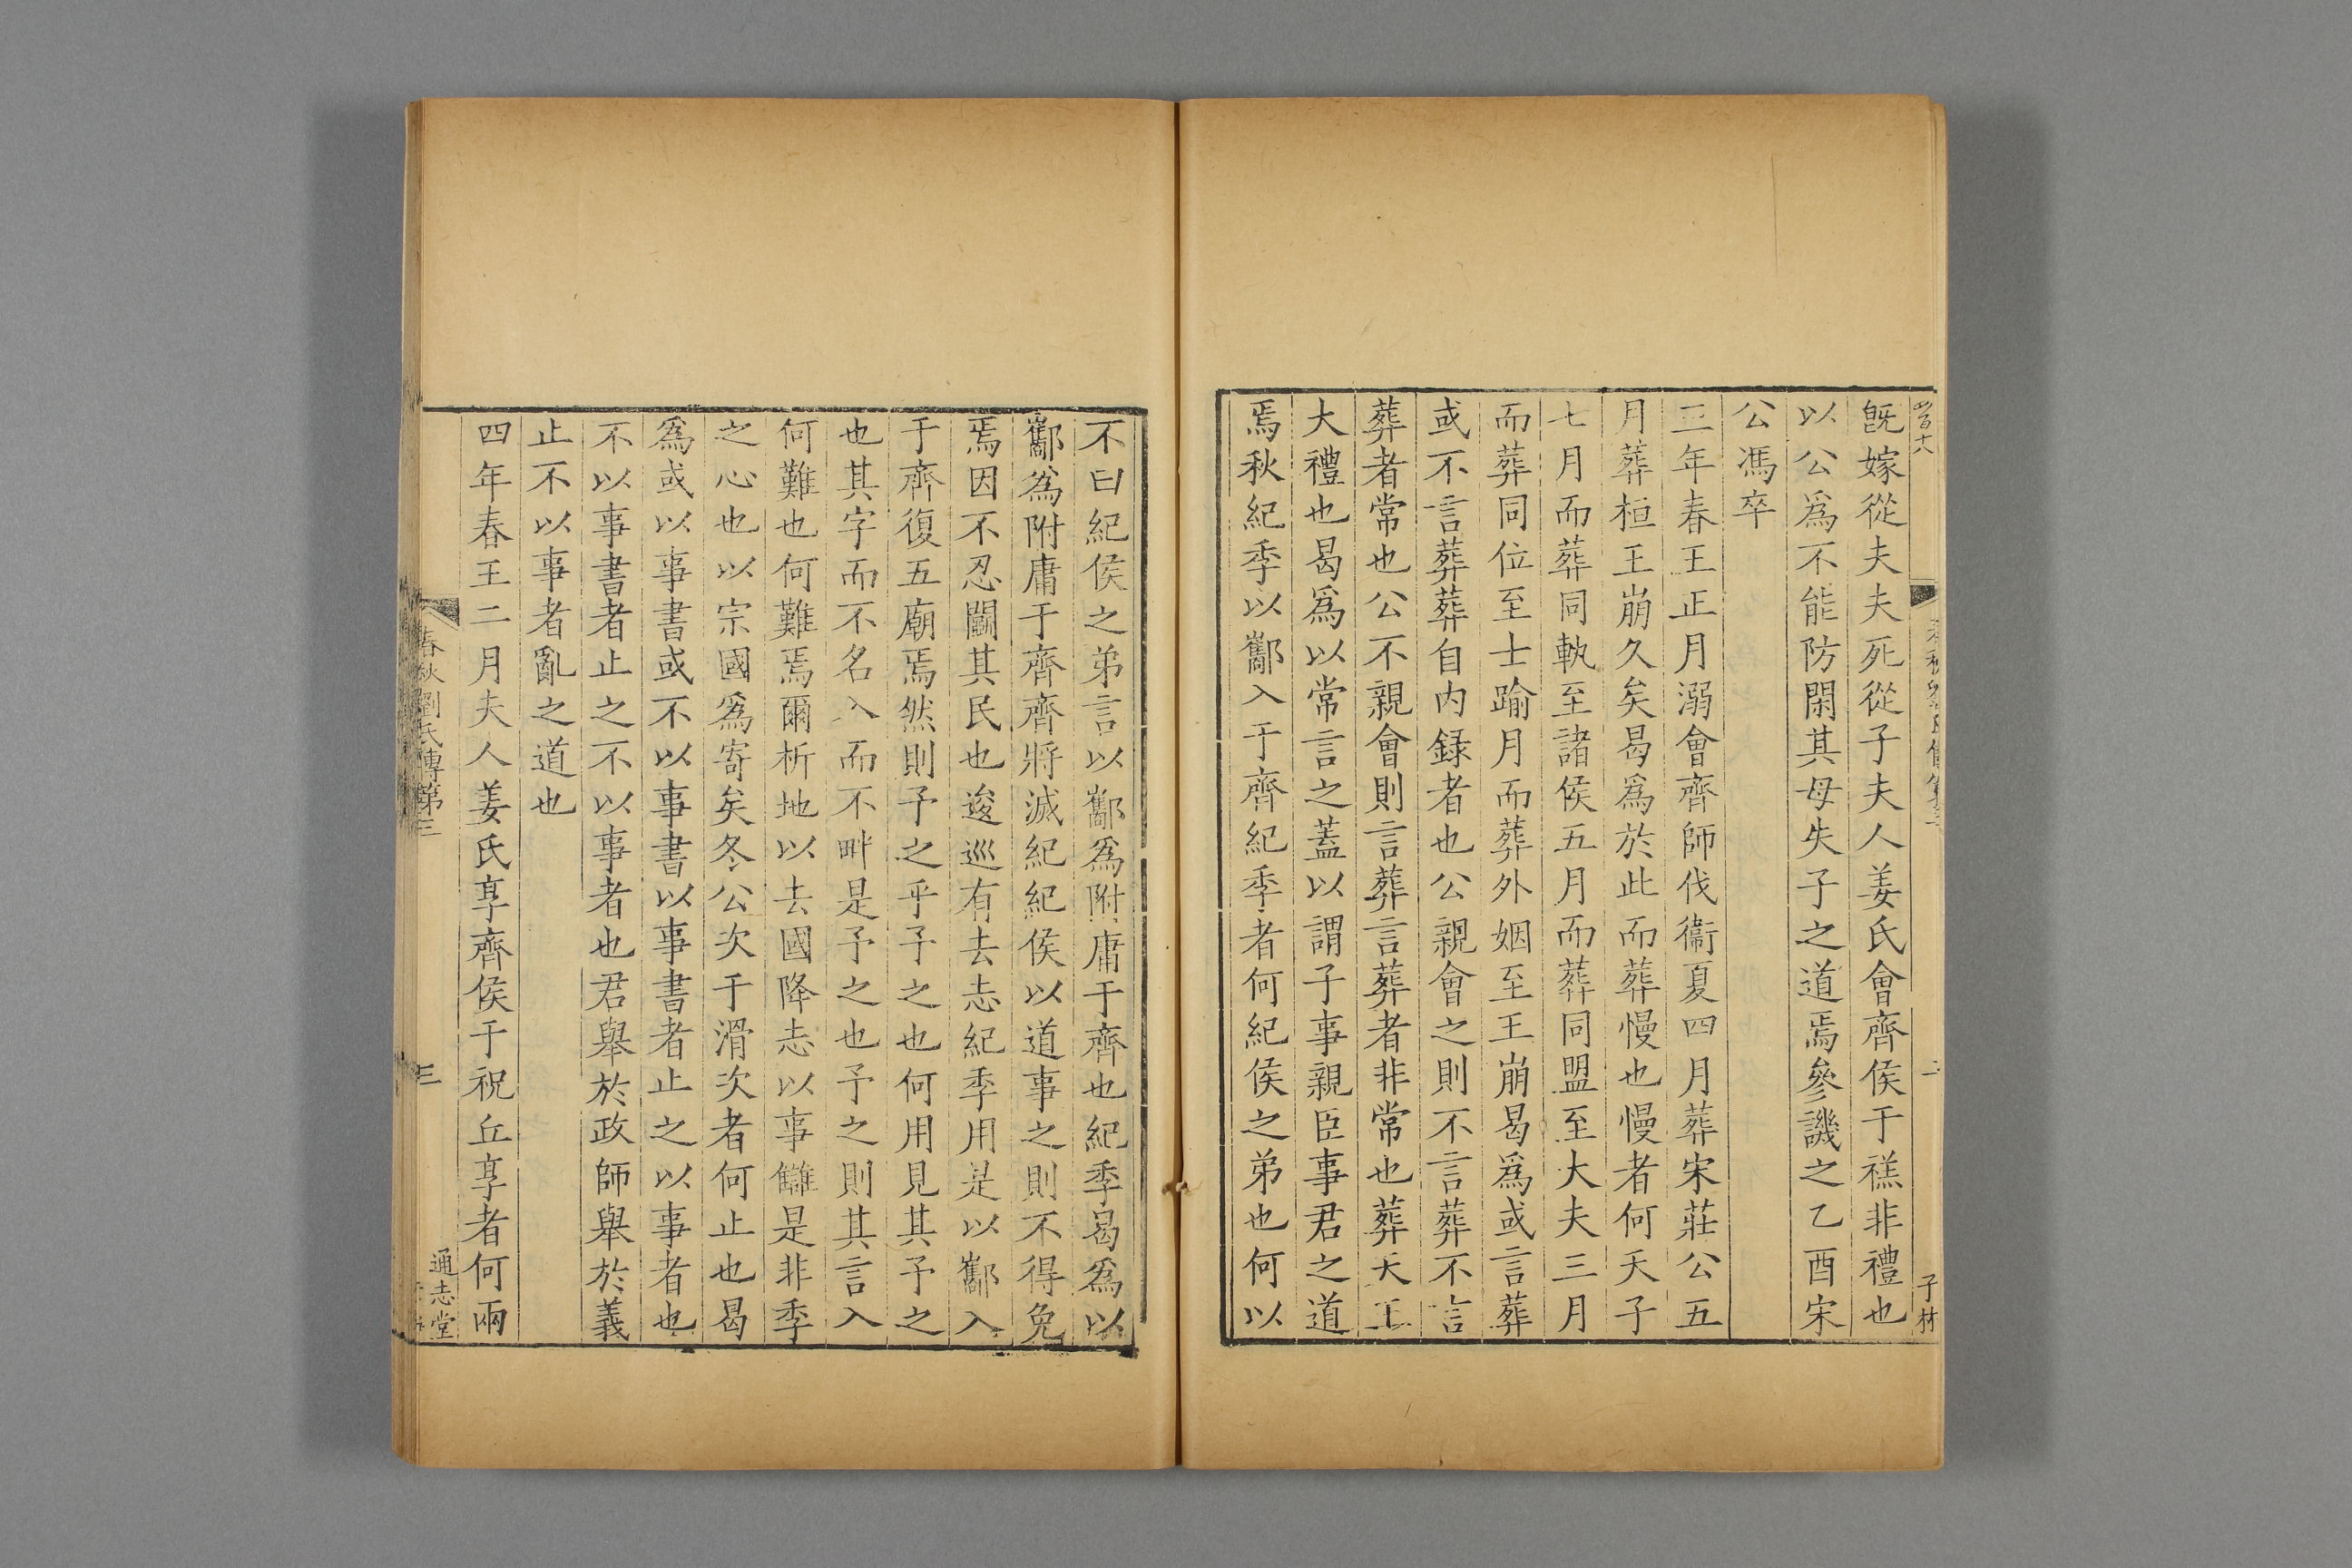 既嫁從夫夫死從子夫人姜氏會齊侯于禚非禮也
以公爲不能防閑其母失子之道焉參譏之乙酉宋
公馮卒
三年春王正月溺會齊師伐衞夏四月葬宋莊公五
月葬桓王崩久矣曷爲於此而葬慢也慢者何天子
七月而葬同軌至諸侯五月而葬同盟至大夫三月
而葬同位至士踰月而葬外姻至王崩曷爲或言葬
或不言葬葬自内録者也公親會之則不言葬不言
葬者常也公不親會則言葬言葬者非常也葬天王
大禮也曷爲以常言之蓋以謂子事親臣事君之道
焉秋紀季以酅入于齊紀季者何紀侯之弟也何以
子林
不曰紀侯之弟言以酅爲附庸于齊也紀季曷爲以
酅爲附庸于齊齊將滅紀紀侯以道事之則不得免
焉因不忍鬬其民也逡巡有去志紀季用是以酅入
于齊復五廟焉然則予之乎予之也何用見其予之
也其字而不名入而不畔是予之也予之則其言入
何難也何難焉爾析地以去國降志以事讎是非季
之心也以宗國爲寄矣冬公次于滑次者何止也曷
爲或以事書或不以事書以事書者止之以事者也
不以事書者止之不以事者也君舉於政師舉於義
止不以事者亂之道也
四年春王二月夫人姜氏享齊侯于祝丘享者何兩
春秋劉氏傳第三
三
通志堂